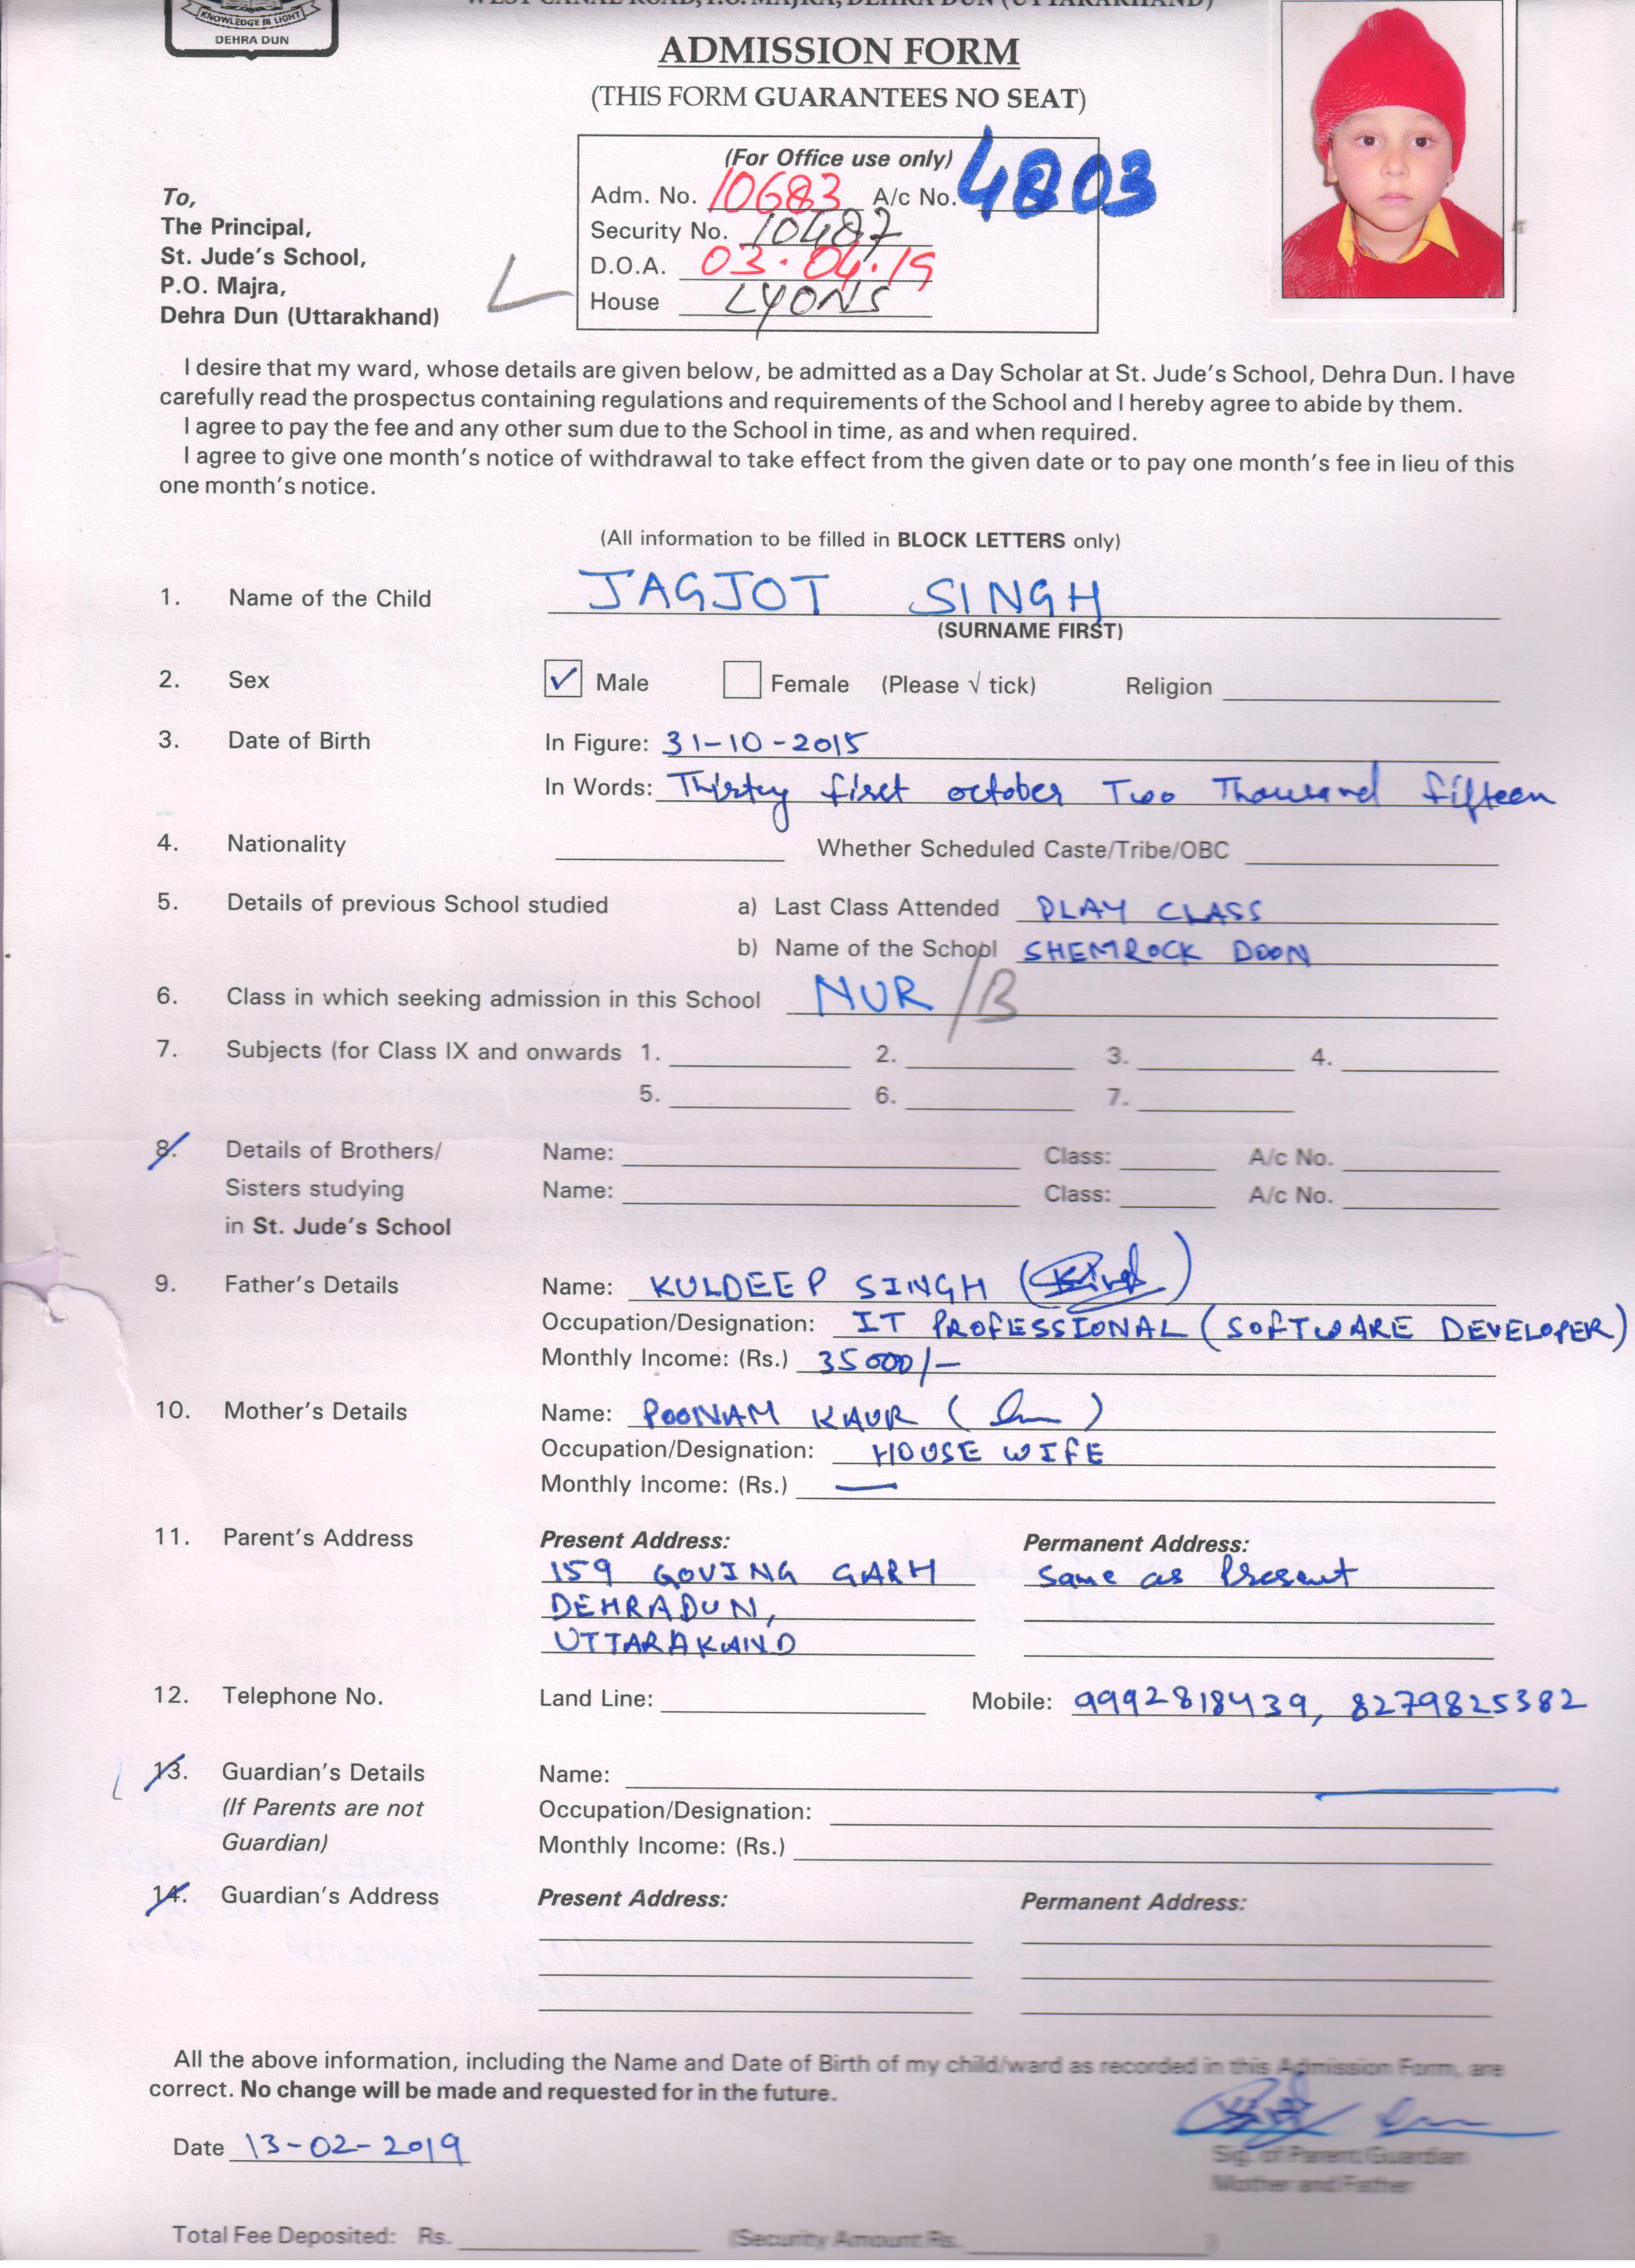 KNOWLEDGE IS LIGHT
DEHRA DUN
WEST CANAL ROAD, P.O. MAJRA, DEHRA DUN (UTTARAKHAND)
ADMISSION FORM
(THIS FORM GUARANTEES NO SEAT)
(For Office use only)
Adm. No. 10683 A/c No. 4803
Security No. 10487
D.O.A. 03.04.19
House LYONS
To,
The Principal,
St. Jude's School,
P.O. Majra,
Dehra Dun (Uttarakhand)
I desire that my ward, whose details are given below, be admitted as a Day Scholar at St. Jude's School, Dehra Dun. I have
carefully read the prospectus containing regulations and requirements of the School and I hereby agree to abide by them.
I agree to pay the fee and any other sum due to the School in time, as and when required.
I agree to give one month's notice of withdrawal to take effect from the given date or to pay one month's fee in lieu of this
one month's notice.
(All information to be filled in BLOCK LETTERS only)
1. Name of the Child JAGJOT SINGH
(SURNAME FIRST)
2. Sex ✓ Male Female (Please √ tick) Religion
3. Date of Birth In Figure: 31-10-2015
In Words: Thirty first october Two Thousand fifteen
4. Nationality Whether Scheduled Caste/Tribe/OBC
5. Details of previous School studied a) Last Class Attended PLAY CLASS
b) Name of the School SHEMROCK DOON
6. Class in which seeking admission in this School NUR/B
7. Subjects (for Class IX and onwards 1. 2. 3. 4.
5. 6. 7.
8. Details of Brothers/ Name: Class: A/c No.
Sisters studying Name: Class: A/c No.
in St. Jude's School
9. Father's Details Name: KULDEEP SINGH
Occupation/Designation: IT PROFESSIONAL (SOFTWARE DEVELOPER)
Monthly Income: (Rs.) 35000/-
10. Mother's Details Name: POONAM KAUR
Occupation/Designation: HOUSE WIFE
Monthly Income: (Rs.) —
11. Parent's Address Present Address: Permanent Address:
159 GOVING GARH Same as Present
DEHRADUN,
UTTARAKHAND
12. Telephone No. Land Line: Mobile: 9992818439, 8279825382
13. Guardian's Details Name:
(If Parents are not Occupation/Designation:
Guardian) Monthly Income: (Rs.)
14. Guardian's Address Present Address: Permanent Address:
All the above information, including the Name and Date of Birth of my child/ward as recorded in this Admission Form, are
correct. No change will be made and requested for in the future.
Date 13-02-2019
Sig. of Parent/Guardian
Mother and Father
Total Fee Deposited: Rs. (Security Amount Rs. )